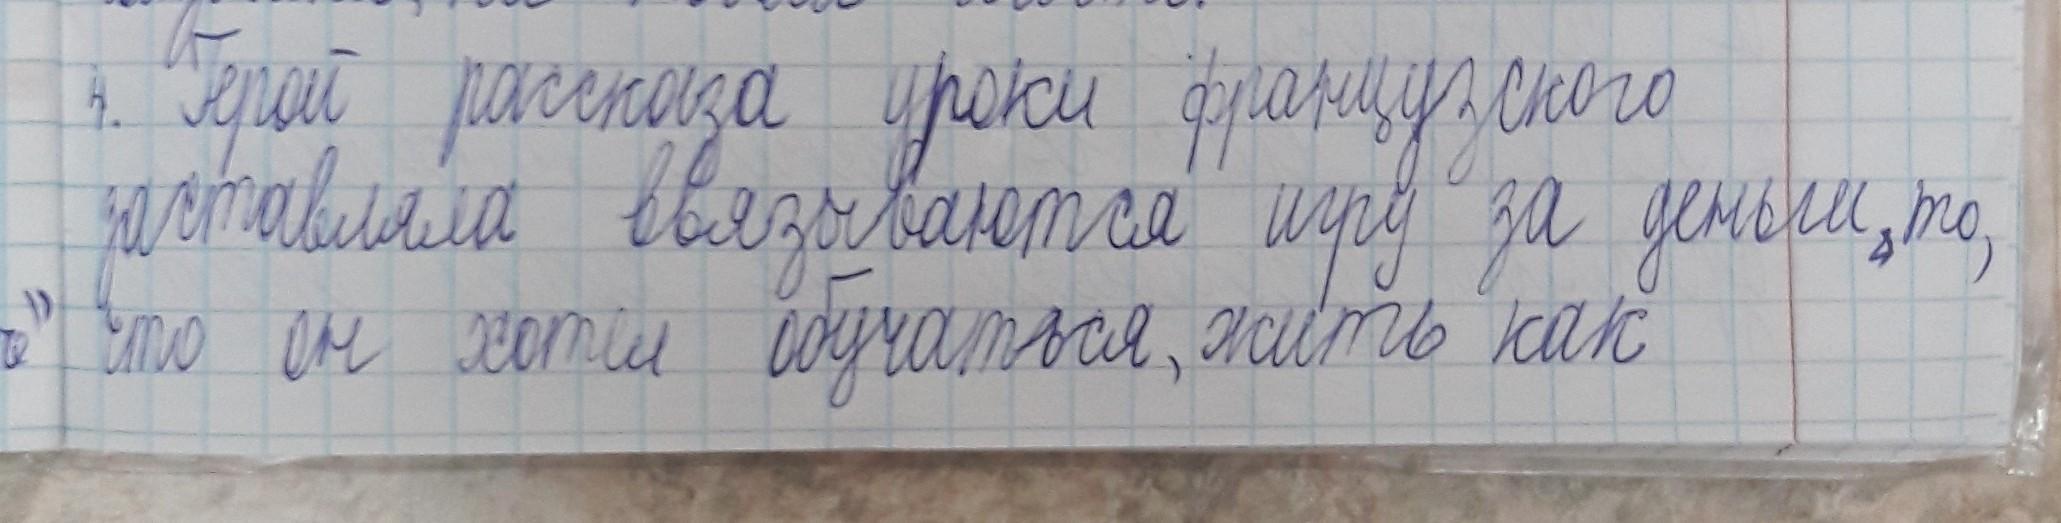 4. Герой рассказа уроки французского
заставляла ввязываются игру за деньги, то,
что он хотел обучаться, жить как